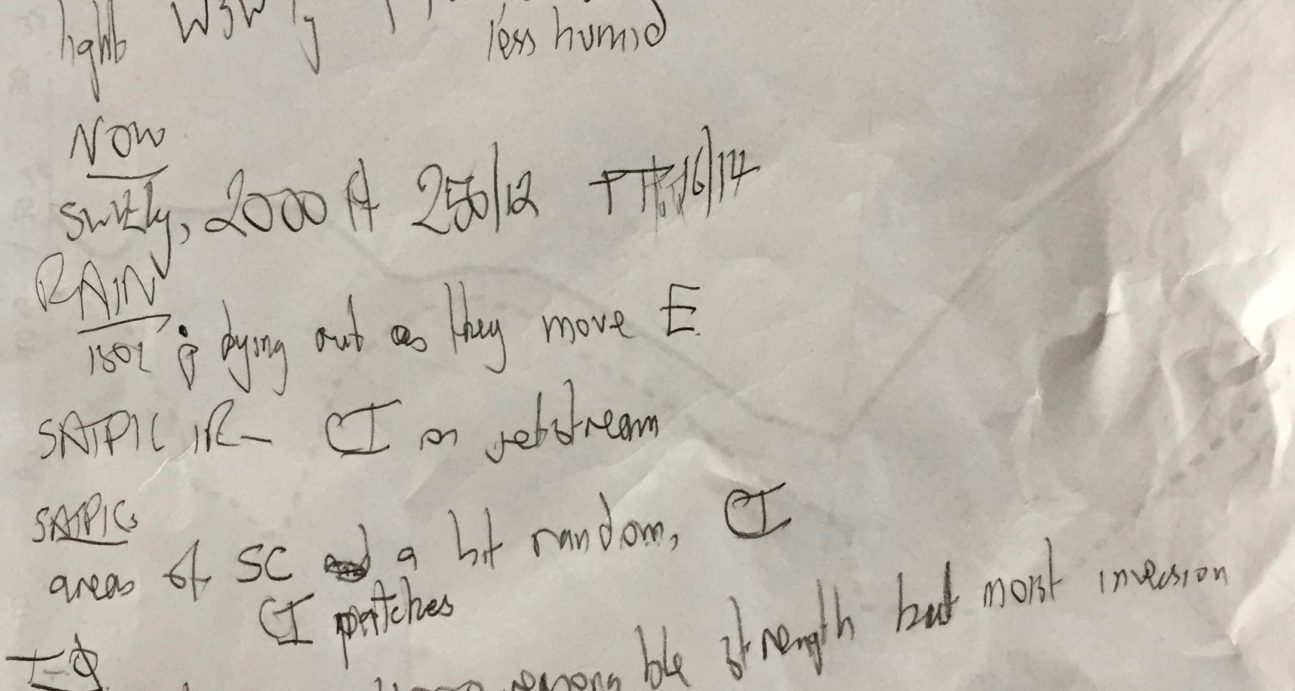 light WSW'ly
less humid
NOW
SW'ly, 2000 ft 250/12 16/14
RAIN
dying out as they move E.
SATPIC IR – CI on jetstream
SATPIC
areas of SC a bit random, CI
CI patches
T-Φ
reasonable strength but moist inversion